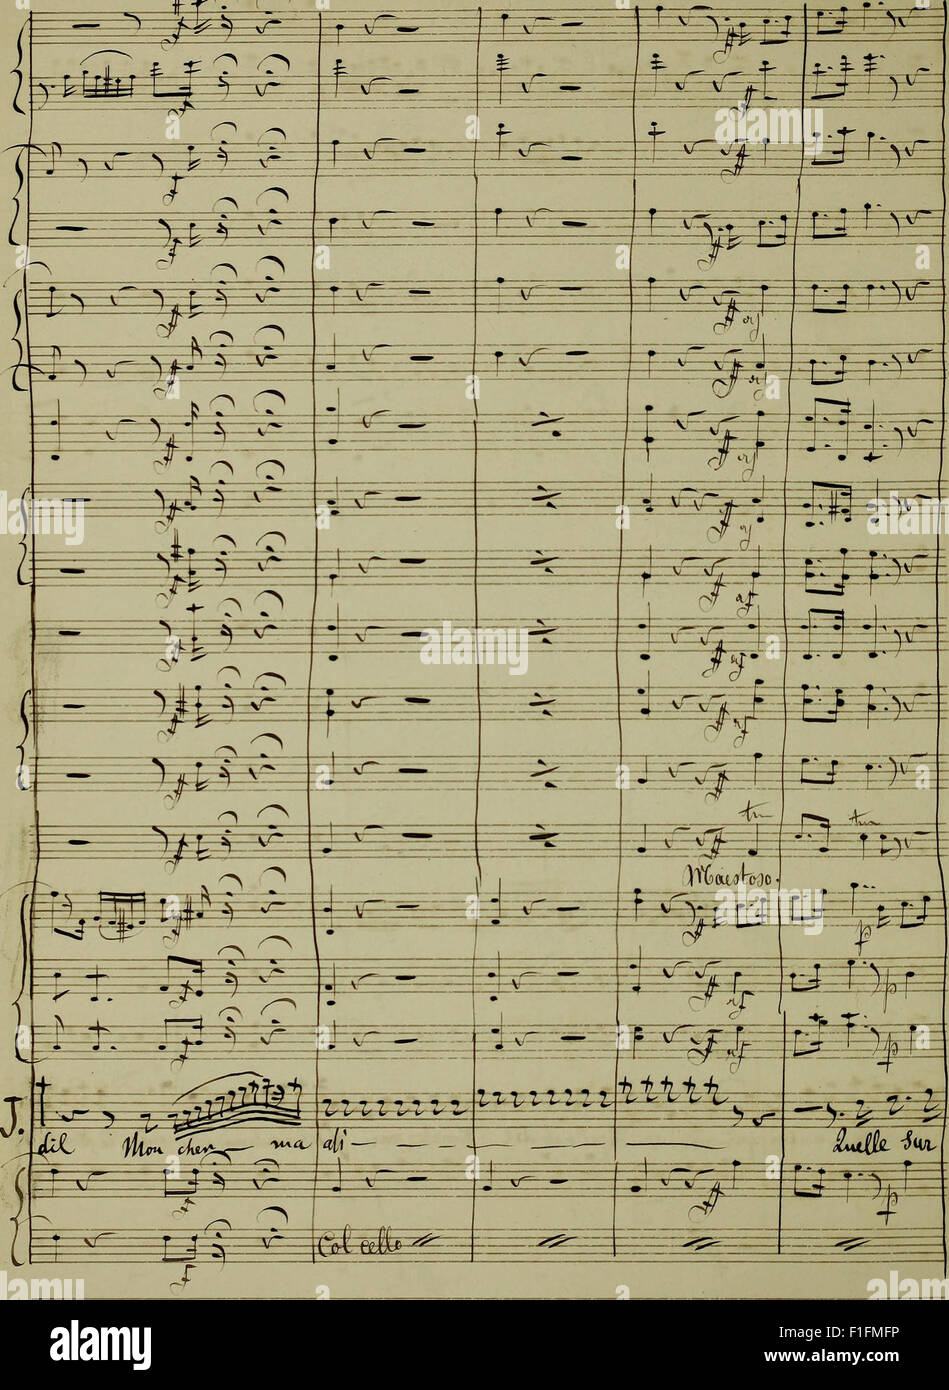 Maestoso.
J.
dil Mon cher ma ali Quelle sur
Col cello
alamy
Image ID: F1FMFP
www.alamy.com